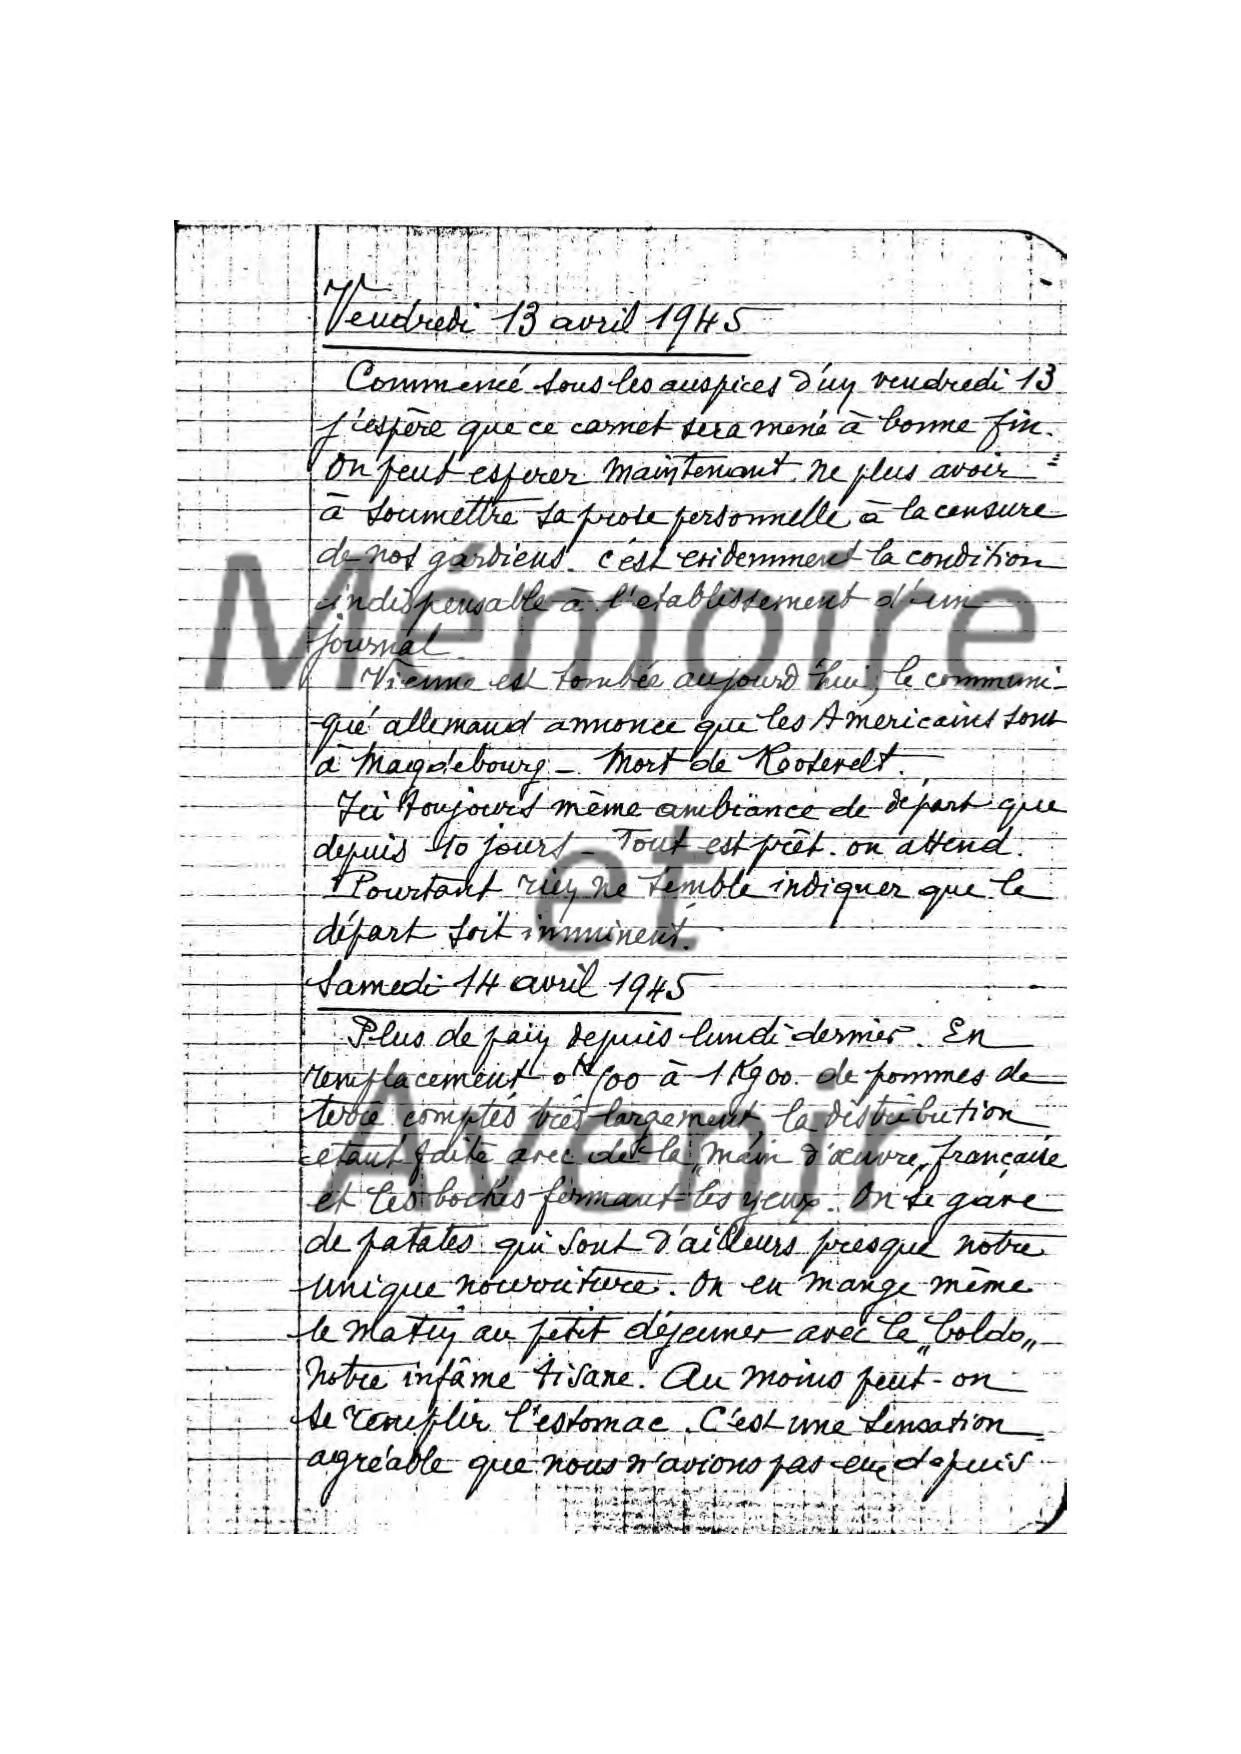 Vendredi 13 avril 1945
Commencé sous les auspices d'un vendredi 13
j'espère que ce carnet sera mené à bonne fin.
On peut esperer maintenant ne plus avoir
à soumettre sa prose personnelle à la censure
de nos gardiens. c'est evidemment la condition
indispensable à l'etablissement d'un
journal
Vienne est tombée aujourd'hui, le communi-
qué allemand annonce que les Américains sont
à Magdebourg - Mort de Roosevelt.
Ici toujours même ambiance de départ que
depuis 10 jours - Tout est prêt. on attend.
Pourtant rien ne semble indiquer que le
départ soit imminent.
Samedi 14 avril 1945
Plus de pain depuis lundi dernier. En
remplacement à 1 Kg00 de pommes de
terre comptés très largement, la distribution
etant faite avec de la "main d'œuvre" française
et les boches fermant les yeux. On se gave
de patates qui sont d'ailleurs presque notre
unique nourriture. On en mange même
le matin au petit déjeuner avec le "boldo"
notre infâme tisane. Au moins peut-on
se remplir l'estomac. C'est une sensation
agréable que nous n'avions pas eue depuis
Mémoire
et
Avenir